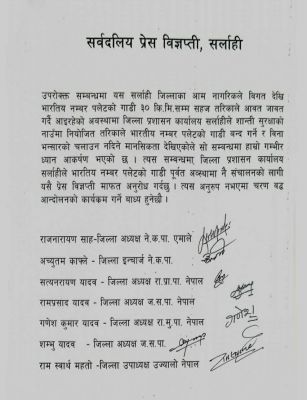 सर्वदलिय प्रेस विज्ञप्ती, सर्लाही
उपरोक्त सम्बन्धमा यस सर्लाही जिल्लाका आम नागरिकले विगत देखि
भारतिय नम्बर पलेटको गाडी ३० कि.मि.सम्म सहज तरिकाले आवत जावत
गर्दै आइरहेको अवस्थामा जिल्ला प्रशासन कार्यालय सर्लाहीले शान्ती सुरक्षाको
नाउँमा नियोजित तरिकाले भारतीय नम्बर पलेटको गाडी बन्द गर्ने र बिना
भन्सारको चलाउन नदिने मानसिकता देखिएकोले सो सम्बन्धमा हाम्रो गम्भीर
ध्यान आकर्षण भएको छ । त्यस सम्बन्धमा जिल्ला प्रशासन कार्यालय
सर्लाहीले भारतिय नम्बर पलेटको गाडी पूर्वत अवस्थामा नै संचालनको लागी
यसै प्रेस विज्ञप्ती मार्फत अनुरोध गर्दछु । त्यस अनुरुप नभएमा चरण बद्ध
आन्दोलनको कार्यक्रम गर्ने बाध्य हुनेछौ ।
राजनारायण साह-जिल्ला अध्यक्ष ने.क.पा. एमाले
अच्युतम काफ्ले - जिल्ला इन्चार्ज ने.क.पा.
सत्यनारायण यादव - जिल्ला अध्यक्ष रा.प्रा.पा. नेपाल
रामप्रसाद यादव - जिल्ला अध्यक्ष ज.स.पा. नेपाल
गणेश कुमार यादव - जिल्ला अध्यक्ष रा.मु.पा. नेपाल
गणेश
शम्भु यादव - जिल्ला अध्यक्ष ज.स.पा.
राम स्वार्थ महतो -जिल्ला उपाध्यक्ष उज्यालो नेपाल